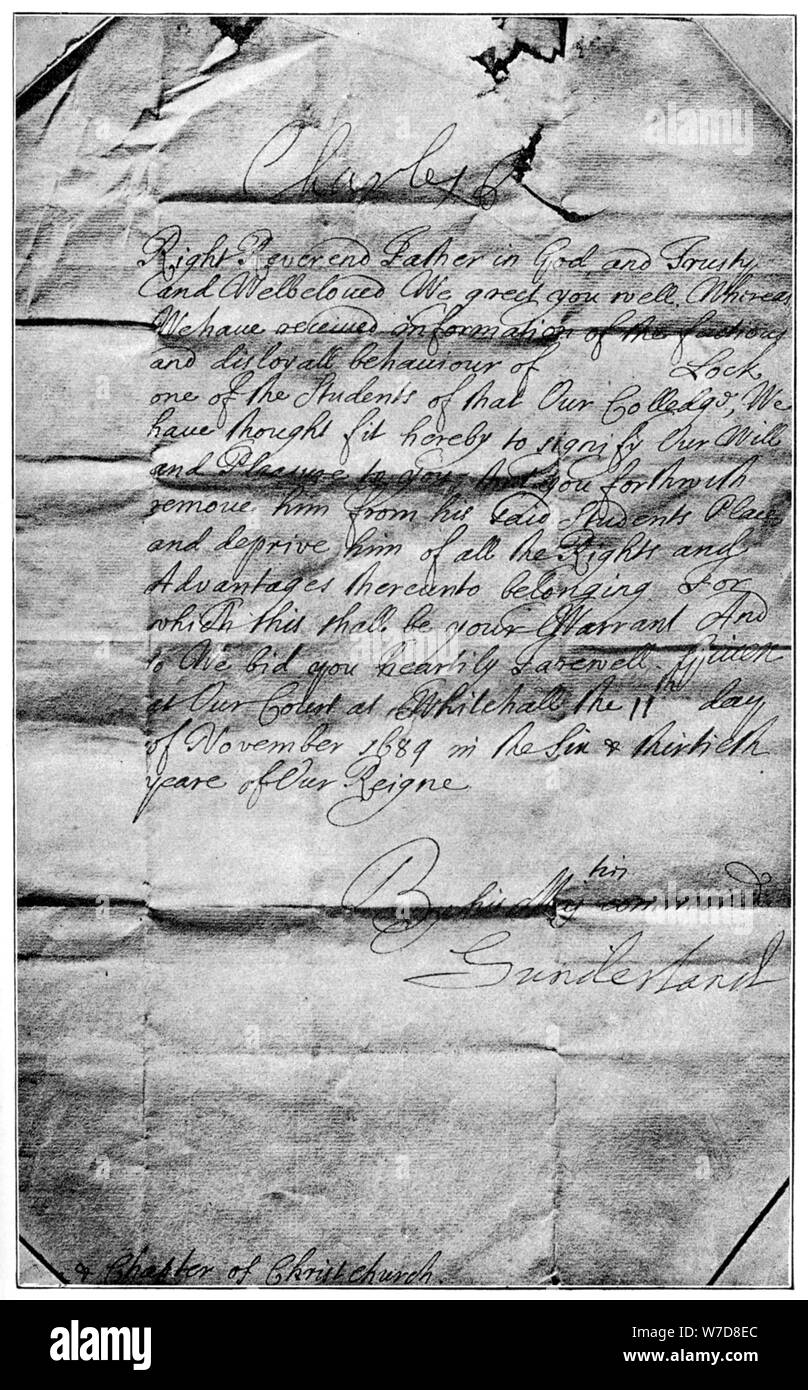 Charles R
Right Reverend Father in God, and Trusty
and Welbeloved We greet you well. Whereas
We have received information of the factious
and disloyall behaviour of Lock
one of the Students of that Our Colledge, We
have thought fit hereby to signify Our Will
and Pleasure to you, that you forthwith
remove him from his said Students Place
and deprive him of all the Rights and
Advantages thereunto belonging For
which this shall be your Warrant And
so We bid you heartily farewell. Given
at Our Court at Whitehall the 11th day
of November 1684 in the Six & thirtieth
yeare of Our Reigne
By his Maj ties command
Sunderland
& Chapter of Christchurch.
alamy
alamy
a
a
a
a
alamy
Image ID: W7D8EC
www.alamy.com